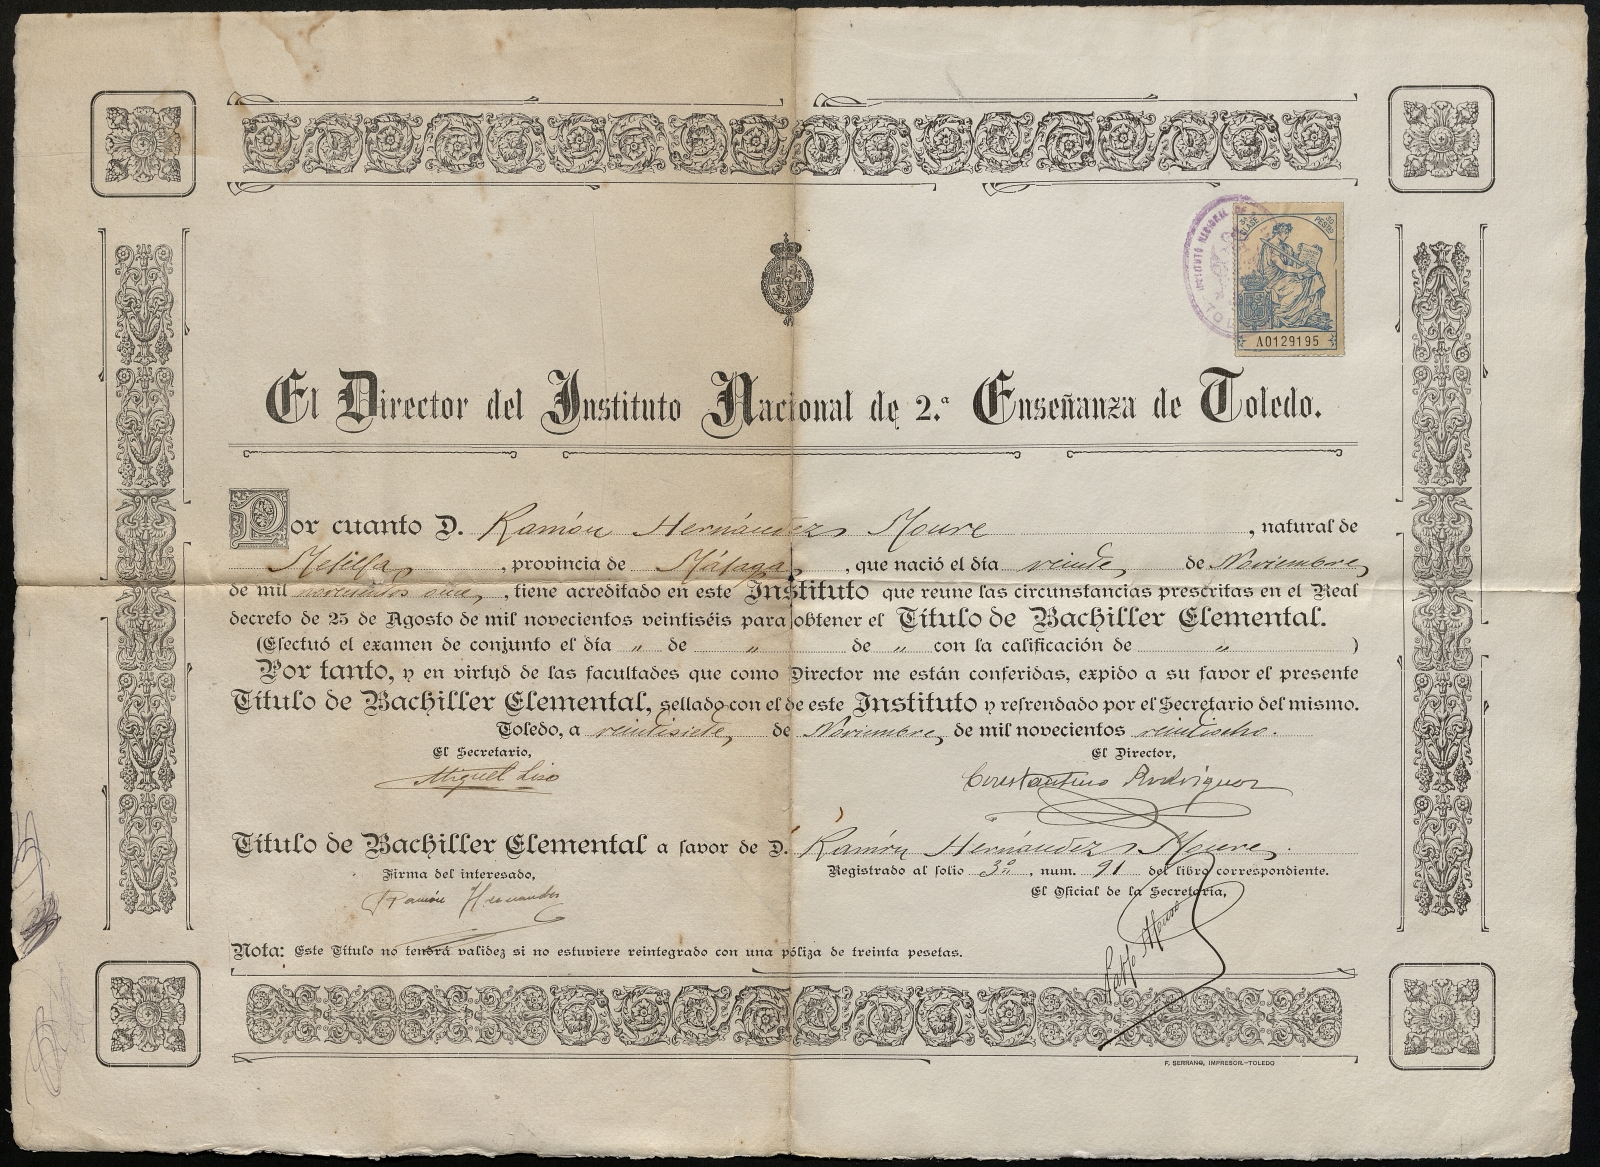 INSTITUTO NACIONAL DE
TOL
5ª CLASE
30 PESETAS
A0129195
El Director del Instituto Nacional de 2.ª Enseñanza de Toledo.
Por cuanto D. Ramón Hernández Moure, natural de
Melilla, provincia de Málaga, que nació el día veinte de Noviembre
de mil novecientos once, tiene acreditado en este Instituto que reune las circunstancias prescritas en el Real
decreto de 25 de Agosto de mil novecientos veintiséis para obtener el Título de Bachiller Elemental.
(Efectuó el examen de conjunto el día „ de „ de „ con la calificación de „ )
Por tanto, y en virtud de las facultades que como Director me están conferidas, expido a su favor el presente
Título de Bachiller Elemental, sellado con el de este Instituto y refrendado por el Secretario del mismo.
Toledo, a veintisiete de Noviembre de mil novecientos veintiocho.
El Secretario,
El Director,
Miguel Liso
Constantino Rodríguez
Título de Bachiller Elemental a favor de D. Ramón Hernández Moure.
Registrado al folio 3º, num. 91 del libro correspondiente.
Firma del interesado,
El Oficial de la Secretaría,
Ramón Hernández
Nota: Este Título no tendrá validez si no estuviere reintegrado con una póliza de treinta pesetas.
F. SERRANO, IMPRESOR.-TOLEDO